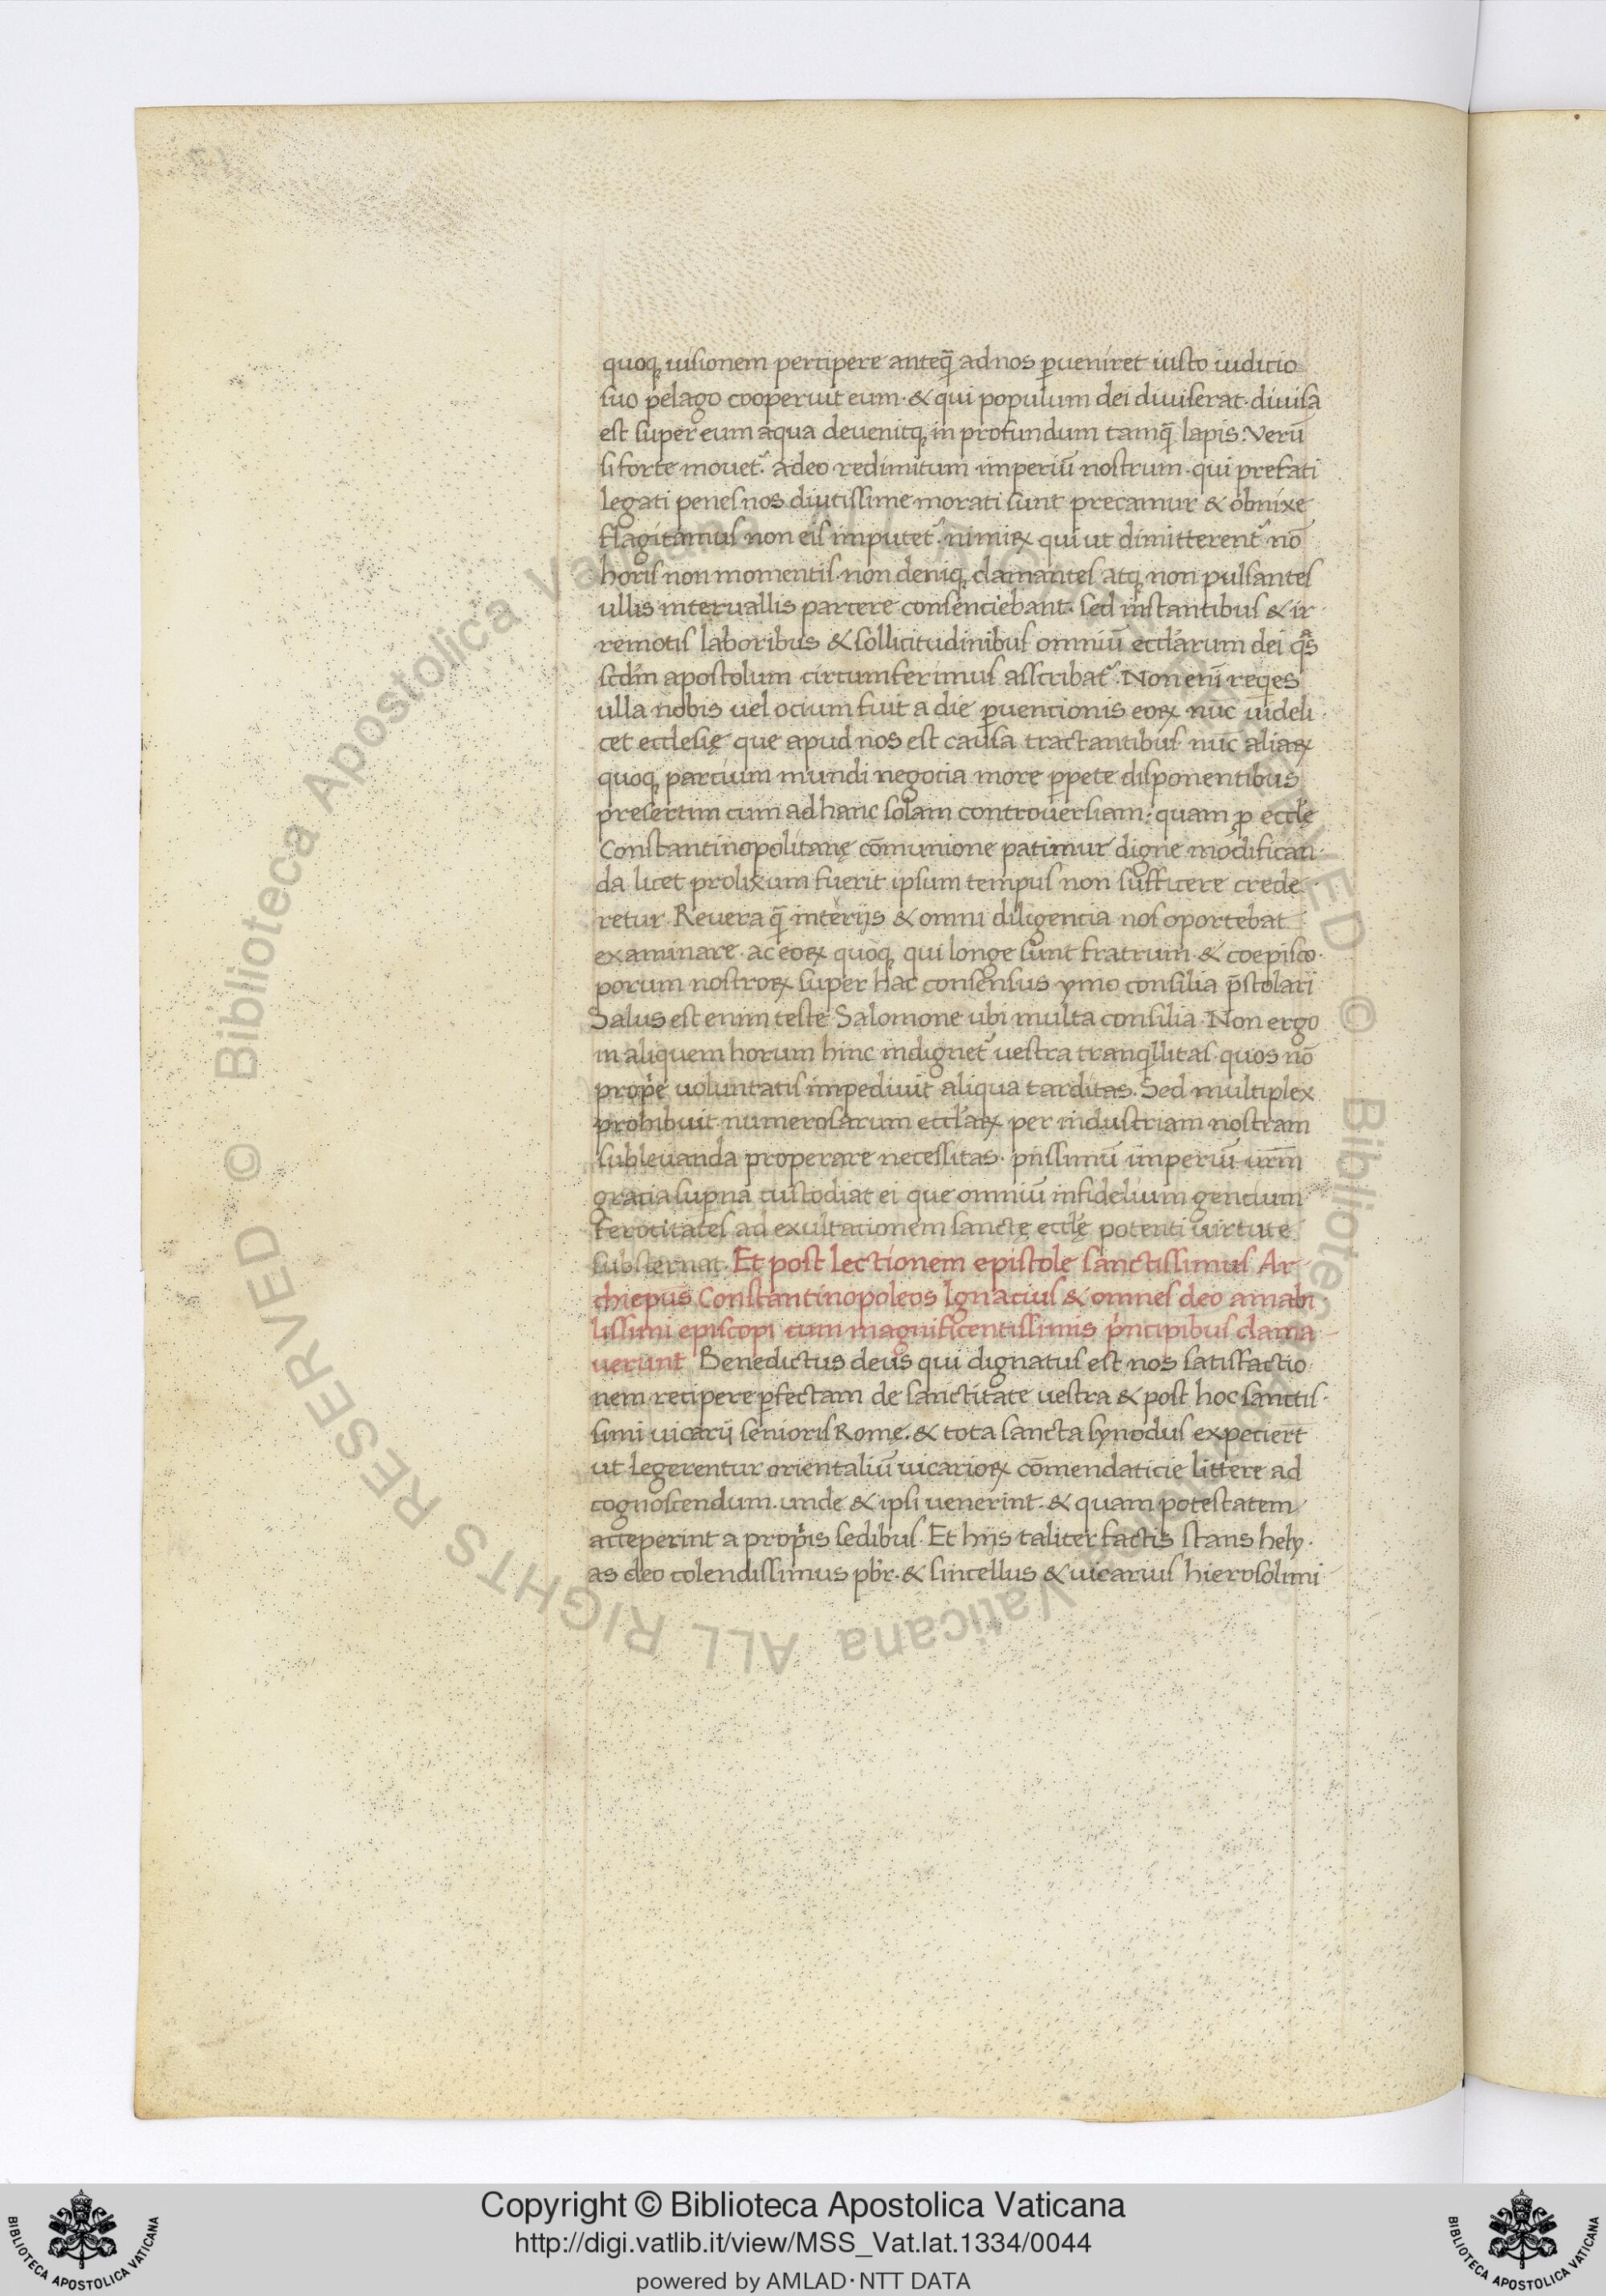 quoq; uisionem percipere anteq̄ ad nos ꝑueniret iusto iudicio
suo pelago cooperuit eum · & qui populum dei diuiserat · diuisa
est super eum aqua deuenitq; in profundum tamq̄ lapis : Verū
si forte mouet᷒ · adeo redimitum imperiū nostrum · qui prefati
legati penes nos diutissime morati sunt precamur & obnixe
flagitamus non eis imputet᷒ · nimiꝝ qui ut dimitterent᷒ nō
horis non momentis · non deniq; clamantes atq; non pulsantes
ullis interuallis parcere consenciebant · sed instantibus & ir
remotis laboribus & sollicitudinibus omniū eccl'arum dei qͣs
scd'm apostolum circumferimus asscribat᷒ · Non eni reqes
ulla nobis uel ocium fuit a die ꝑuencionis eoꝝ nūc uideli
cet ecclesię que apud nos est causa tractantibus nūc aliaꝝ
quoq; parcium mundi negocia more ꝑpete disponentibus
presertim cum ad hanc solam controuersiam : quam ꝓ eccl'ę
Constantinopolitanę cōmunione patimur digne modifican
da licet prolixum fuerit ipsum tempus non sufficere crede
retur · Reuera q̄ interijs & omni diligencia nos oportebat
examinare · ac eoꝝ quoq; qui longe sunt fratrum · & coepisco
porum nostroꝝ super hac consensus ymo consilia p̄stolari
Salus est enim teste Salomone ubi multa consilia · Non ergo
in aliquem horum hinc indignet᷒ uestra tranqillitas · quos nō
prop'e uoluntatis impediuit aliqua tarditas . Sed multiplex
prohibuit numerosarum eccl'aꝝ per industriam nostram
subleuanda properare necessitas · piissimū imperiū urm̄
gracia supna custodiat ei que omniū infidelium gencium
ferocitates ad exultacionem sanctę eccl'ę potenti uirtute
substernat · Et post lectionem epistole sanctissimus Ar
chiepus Constantinopoleos Ignacius & omnes deo amabi
lissimi episcopi cum magnificentissimis p'ncipibus clama
uerunt Benedictus deus qui dignatus est nos satisfactio
nem recipere ꝑfectam de sanctitate uestra & post hoc sanctis
simi uicarij senioris Romę . & tota sancta synodus expeciert
ut legerentur orientaliū uicarioꝝ cōmendaticie littere ad
cognoscendum · unde & ipsi uenerint · & quam potestatem
acceperint a prop'is sedibus · Et hijs taliter factis stans hely
as deo colendissimus pb'r · & sincellus & uicarius hierosolimi
Biblioteca Apostolica Vaticana ALL RIGHTS RESERVED ©
Copyright © Biblioteca Apostolica Vaticana
http://digi.vatlib.it/view/MSS_Vat.lat.1334/0044
powered by AMLAD · NTT DATA
BIBLIOTECA APOSTOLICA VATICANA
BIBLIOTECA APOSTOLICA VATICANA